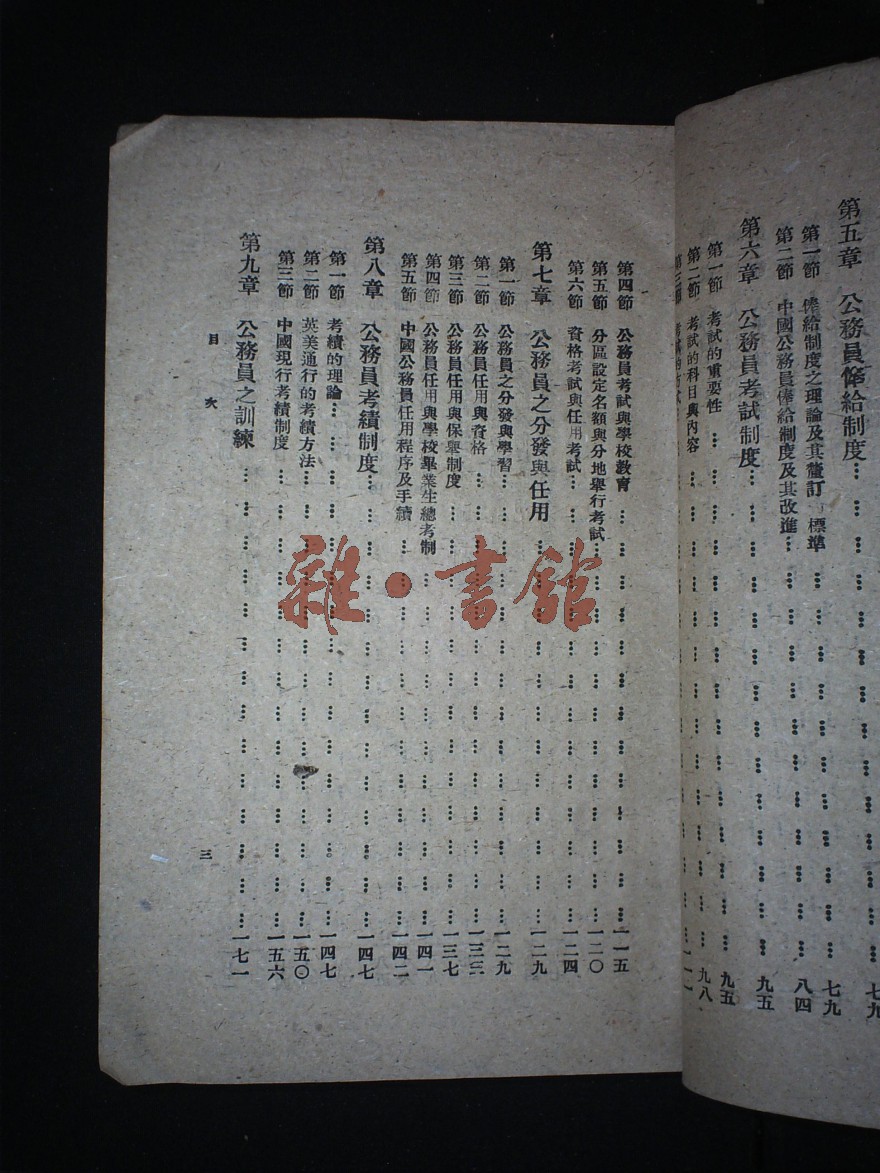 第五章 公務員俸給制度 七九
第一節 俸給制度之理論及其釐訂 標準 七九
第二節 中國公務員俸給制度及其改進 八四
第六章 公務員考試制度 九五
第一節 考試的重要性 九五
第二節 考試的科目與內容 九八
第四節 公務員考試與學校教育 一一五
第五節 分區設定名額與分地舉行考試 一二〇
第六節 資格考試與任用考試 一二四
第七章 公務員之分發與任用 一二九
第一節 公務員之分發與學習 一二九
第二節 公務員任用與資格 一三三
第三節 公務員任用與保舉制度 一三七
第四節 公務員任用與學校畢業生總考制 一四一
第五節 中國公務員任用程序及手續 一四二
第八章 公務員考績制度 一四七
第一節 考績的理論 一四七
第二節 英美通行的考績方法 一五〇
第三節 中國現行考績制度 一五六
第九章 公務員之訓練 一七一
目 次
三
雜·書館